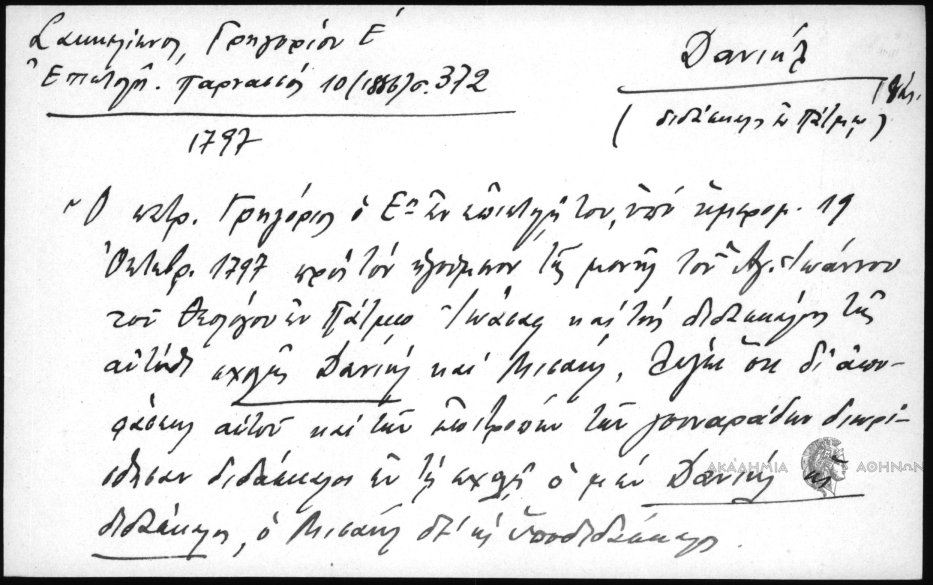 Σακκελίωνος, Γρηγορίου Ε΄
Ἐπιστολή. Παρνασσός 10 (1886) σ. 372
1797
Δανιήλ
(διδάσκαλος ἐν Πάτμῳ)
Ὁ πατρ. Γρηγόριος ὁ Ε^ος ἐν ἐπιστολῇ του, ὑπό ἡμερομ. 19
Ὀκτωβρ. 1797 πρός τόν ἡγούμενον τῆς μονῆς τοῦ Ἁγ. Ἰωάννου
τοῦ Θεολόγου ἐν Πάτμῳ καί τούς διδασκάλους τῆς
αὐτόθι σχολῆς Δανιήλ καί Μισαήλ, λέγει ὅτι δι' ἀπο-
φάσεως αὐτοῦ καί τῶν ἐπιτρόπων τῶν γουναράδων διωρί-
σθησαν διδάσκαλοι ἐν τῇ σχολῇ ὁ μέν Δανιήλ ὡς
διδάσκαλος, ὁ Μισαήλ δέ ὡς ὑποδιδάσκαλος.
ΑΚΑΔΗΜΙΑ ΑΘΗΝΩΝ